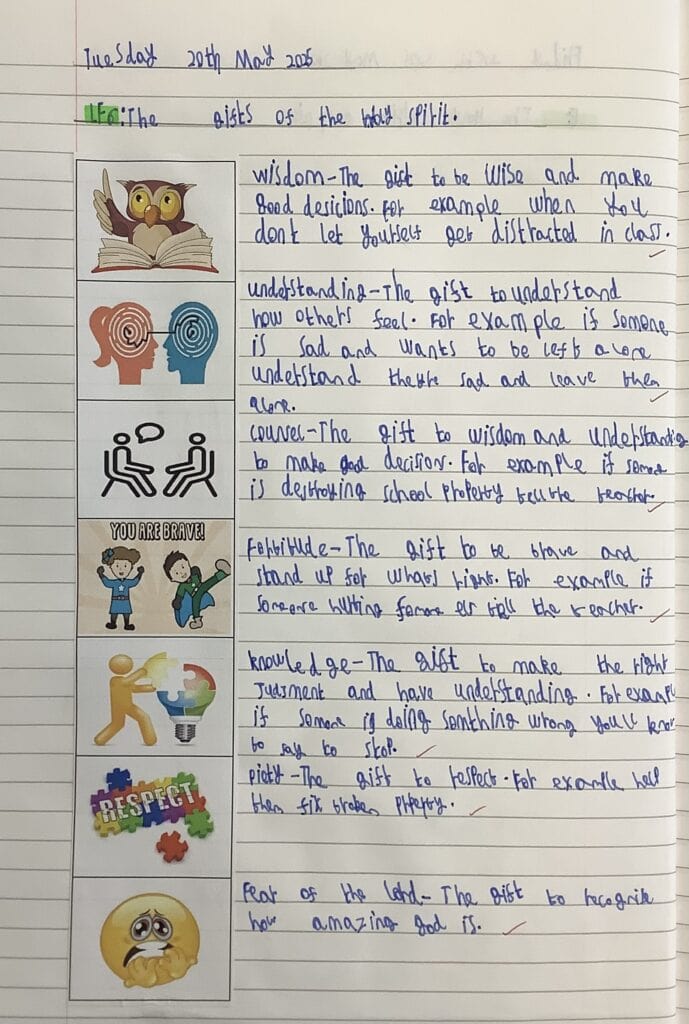 Tuesday 20th May 2025
LFo: The gifts of the holy spirit.
wisdom-The gift to be wise and make
good desicions. For example when you
dont let yourself get distracted in class.
understanding-The gift to understand
how others feel. For example if somone
is sad and wants to be left alone
understand sad and leave them
alone.
The gift to wisdom and understanding
to make good decision. For example if somone
is destroying school property tell the teacher.
YOU ARE BRAVE!
The gift to be brave and
stand up for whats right. For example if
someone hurting tell the teacher.
knowledge-The gift to make the right
Judgment and have understanding. For example
if somone is doing somthing wrong you'll know
to say to stop.
RESPECT
piety-The gift to respect. For example help
them fix broken
Fear of the Lord-The gift to
how amazing god is.